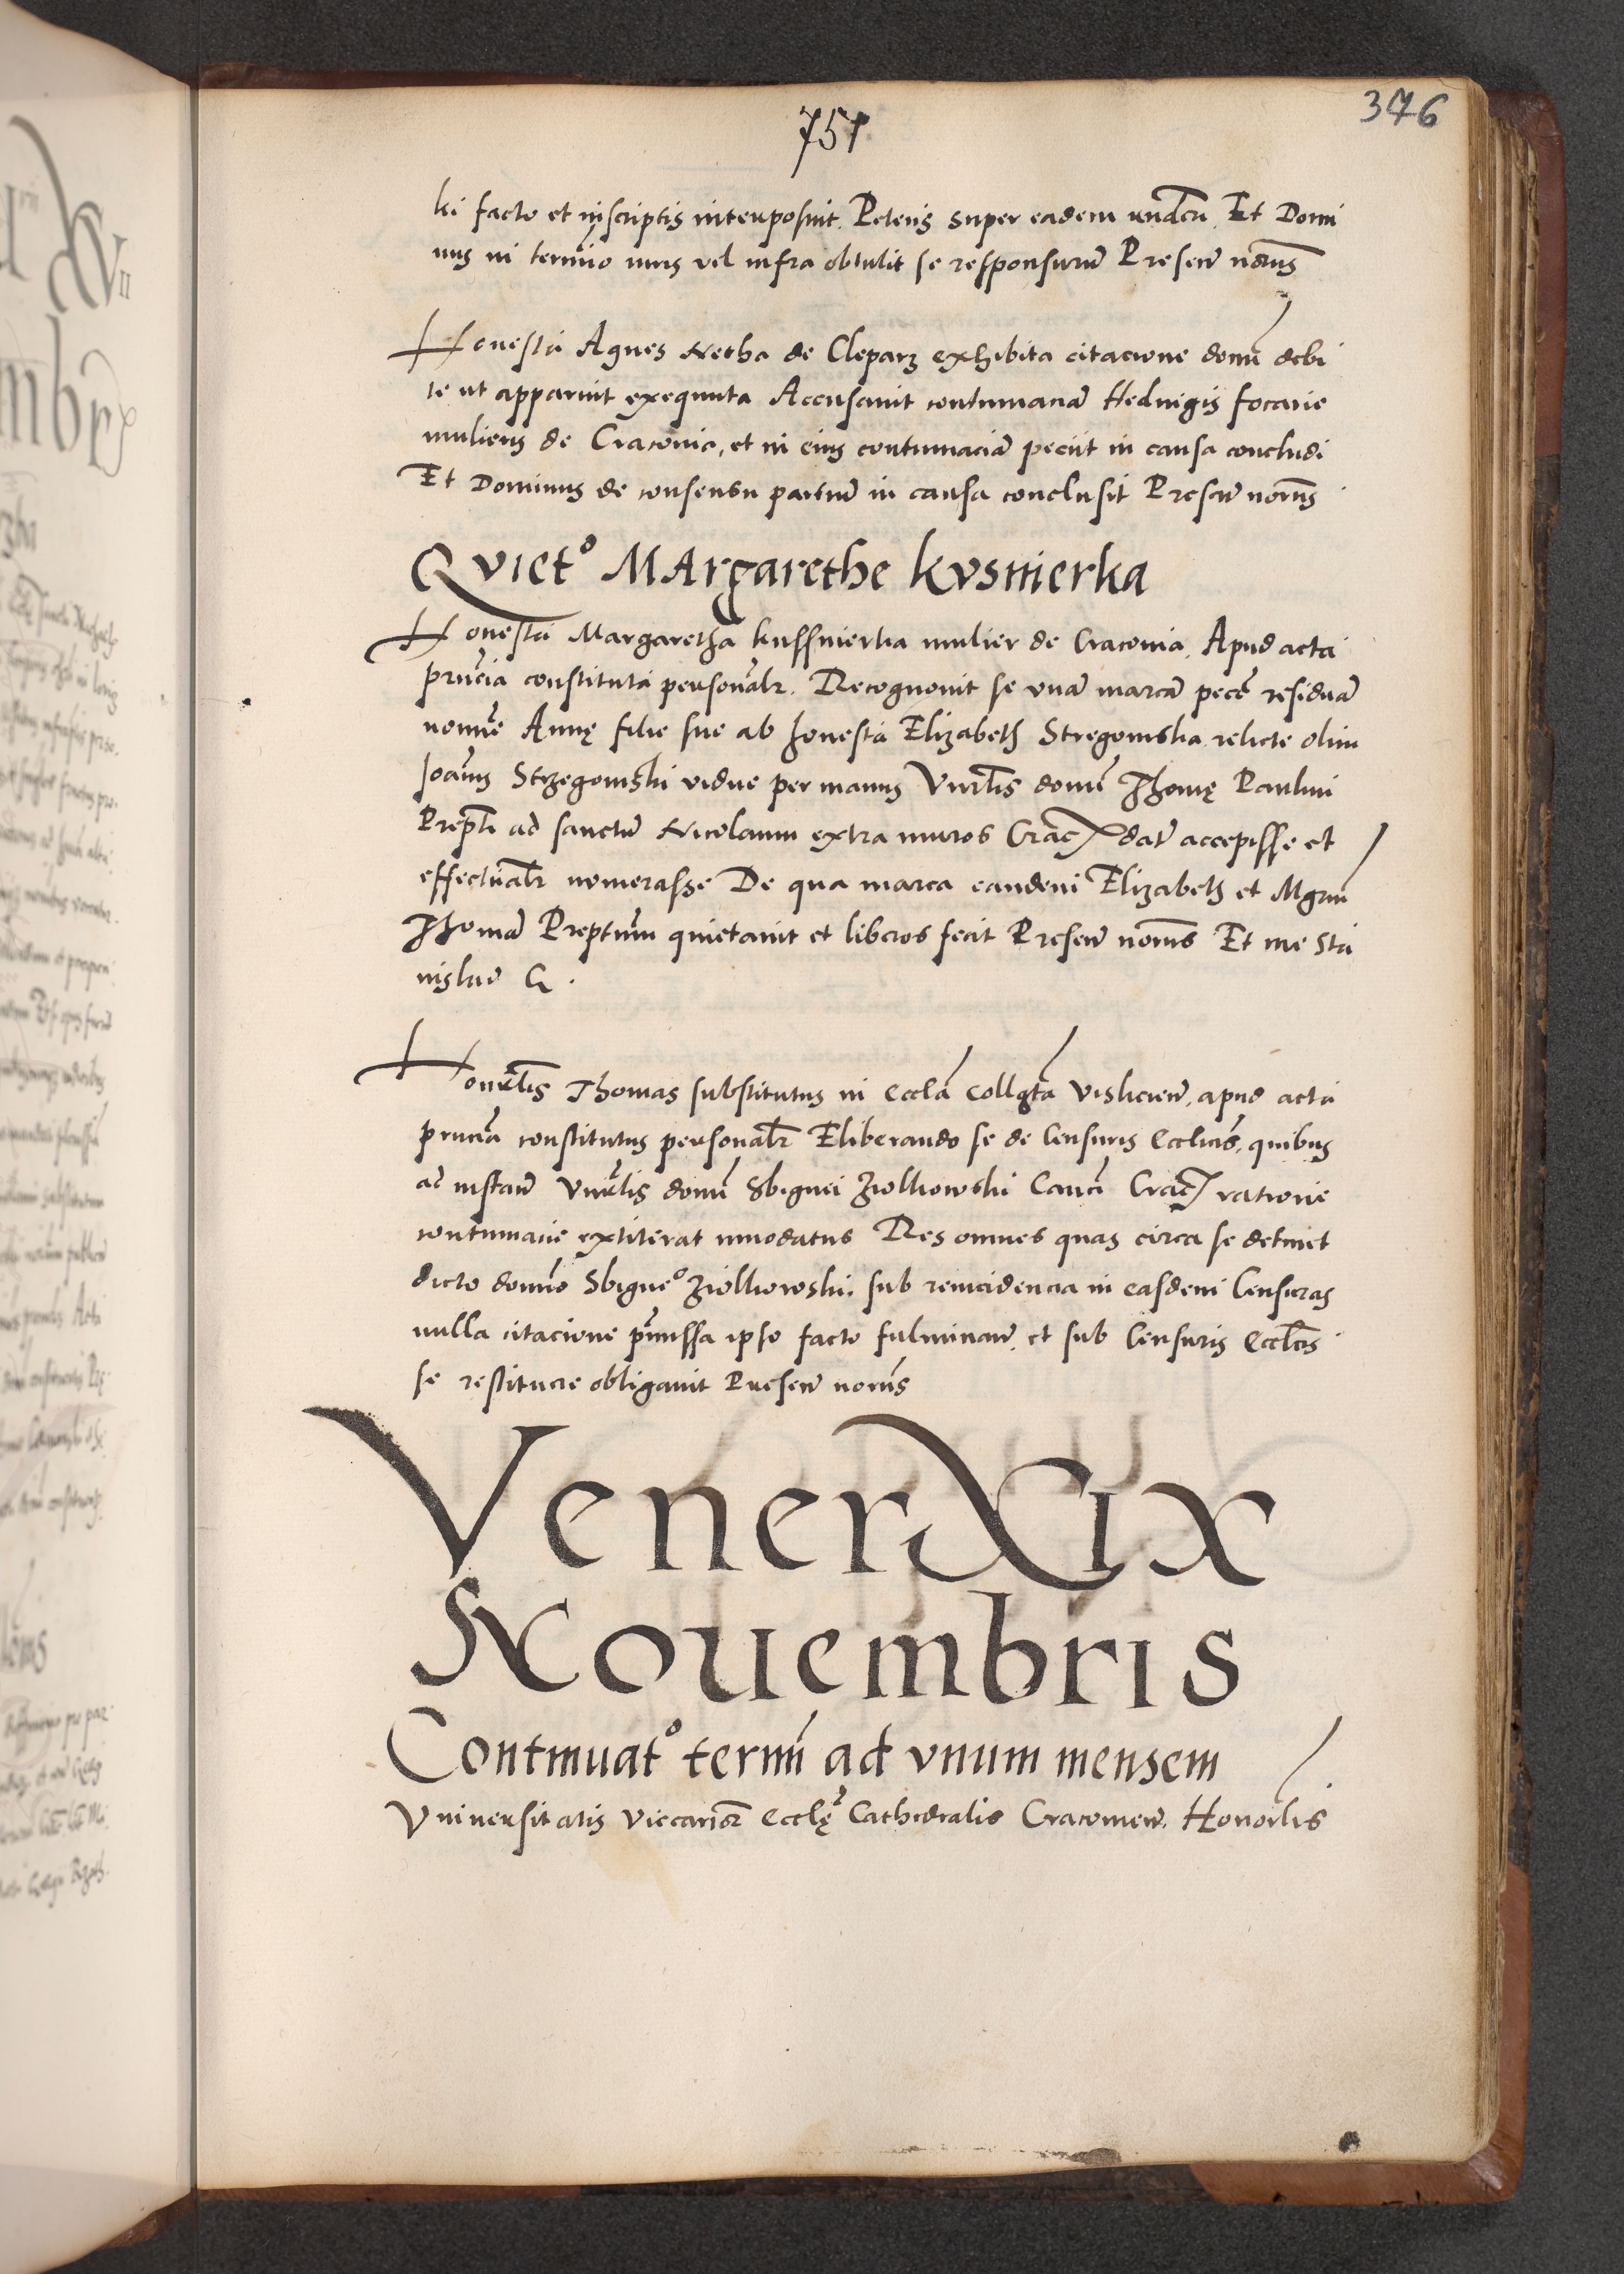 376
751
ki facto et inscriptis interposuit. Petens super eadem vnacu. Et Domi
nus in termino iuris vel infra obtulit se responsurum Presen notariis
Honesta Agnes Nerha de Cleparz exhibita citacione domi debi
te ut apparuit exequuta Accusauit contumaciam Heduigis focarie
mulieris de Cracouia, et in eius contumaciam peciit in causa concludi
Et Dominus de consensu partium in causa conclusit Presen notis
Quieto MArgarethe kvsnierka
Honesta Margaretha kussnierka mulier de Cracouia. Apud acta
pruncia constituta personalr. Recognouit se vnam marcam pecc residuam
nomine Annę filie sue ab honesta Elizabeth Stregomska relicte olim
Joannis Strzegomski vidue per manus Vnrlis domi Thomę Paulini
Prepti ad sanctum Nicolaum extra muros Crac datam accepisse et
effectualr numerasse De qua marca eandem Elizabeth et Mgrm
Thomam Preptum quietauit et liberos fecit Presen notis Et me Sta
nislao G.
Honrlis Thomas substitutus in Eccla Collgta Vislicien, apud acta
pruncia constitutus personalr Eliberando se de Censuris Eccliis, quibus
ad instan Vnrlis domi Sbignei Ziolkowski Canci Crac ratione
contumacie extiterat innodatus Res omnes quas circa se detinet
dicto domino Sbigneo Ziolkowski, sub reincidencia in easdem Censuras
nulla citacione premissa ipso facto fulminan, et sub Censuris Ecclis
se restituere obligauit Presen notis
Vener XIX
Nouembris
Continuato termi ad vnum mensem
Vniuersitatis Viccarior Ecclę Cathedralis Cracouien. Honorlis